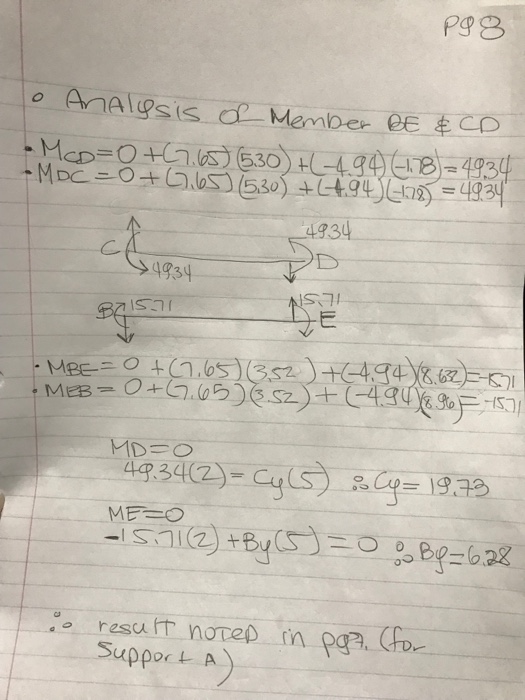 pg 8
Analysis of Member BE & CD
• MCD = 0 + (7.65)(5.30) + (-4.94)(-1.78) = 49.34
• MDC = 0 + (7.65)(5.30) + (-4.94)(-1.78) = 49.34
49.34
C D
49.34
B 15.71 15.71
E
• MBE = 0 + (7.65)(3.52) + (-4.94)(8.632) = -15.71
• MEB = 0 + (7.65)(3.52) + (-4.94)(8.96) = -15.71
MD = 0
49.34(2) = Cy(5) ∴ Cy = 19.73
ME = 0
-15.71(2) + By(5) = 0 ∴ By = 6.28
∴ result noted in pg7. (for
Support A)